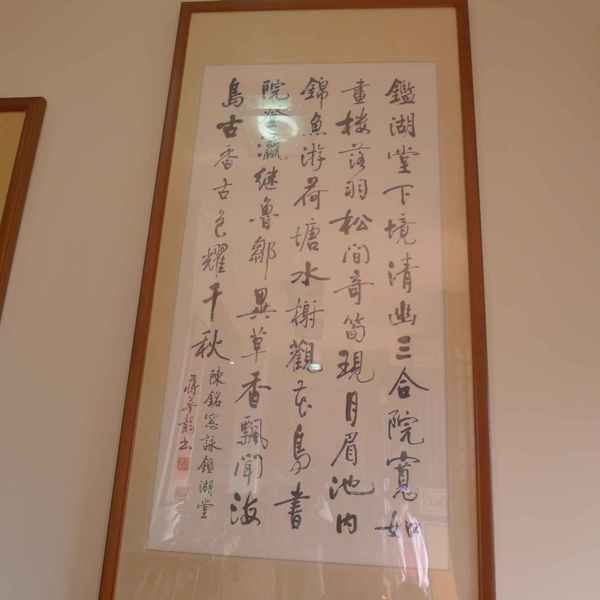 鑑湖堂下境清幽三合院寬如
畫樓落羽松間奇筍現月眉池內
錦魚游荷塘水榭觀花鳥書
院登瀛繼魯鄒異草香飄聞海
島古香古色耀千秋
陳銘詠鑑湖堂
蔣夢龍書